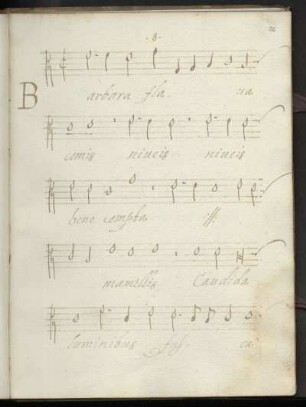 ·8·
Barbara fla. ua
comis niueis niueis
bene compta :||:
mamillis Candida
luminibus fus. ca